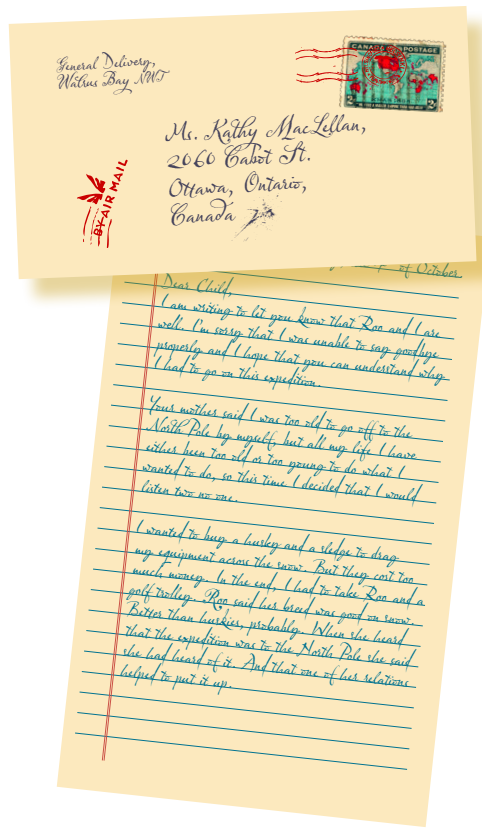 General Delivery,
Walrus Bay NWT
CANADA POSTAGE
2 2
Ms. Kathy MacLellan,
2060 Cabot St.
Ottawa, Ontario,
Canada
BY AIR MAIL
of October
Dear Child,
I am writing to let you know that Roo and I are
well. I'm sorry that I was unable to say goodbye
properly and I hope that you can understand why
I had to go on this expedition.
Your mother said I was too old to go off to the
North Pole by myself, but all my life I have
either been too old or too young to do what I
wanted to do, so this time I decided that I would
listen two no one.
I wanted to buy a husky and a sledge to drag
my equipment across the snow. But they cost too
much money. In the end, I had to take Roo and a
golf trolley. Roo said her breed was good on snow.
Better than huskies, probably. When she heard
that the expedition was to the North Pole she said
she had heard of it. And that one of her relations
helped to put it up.